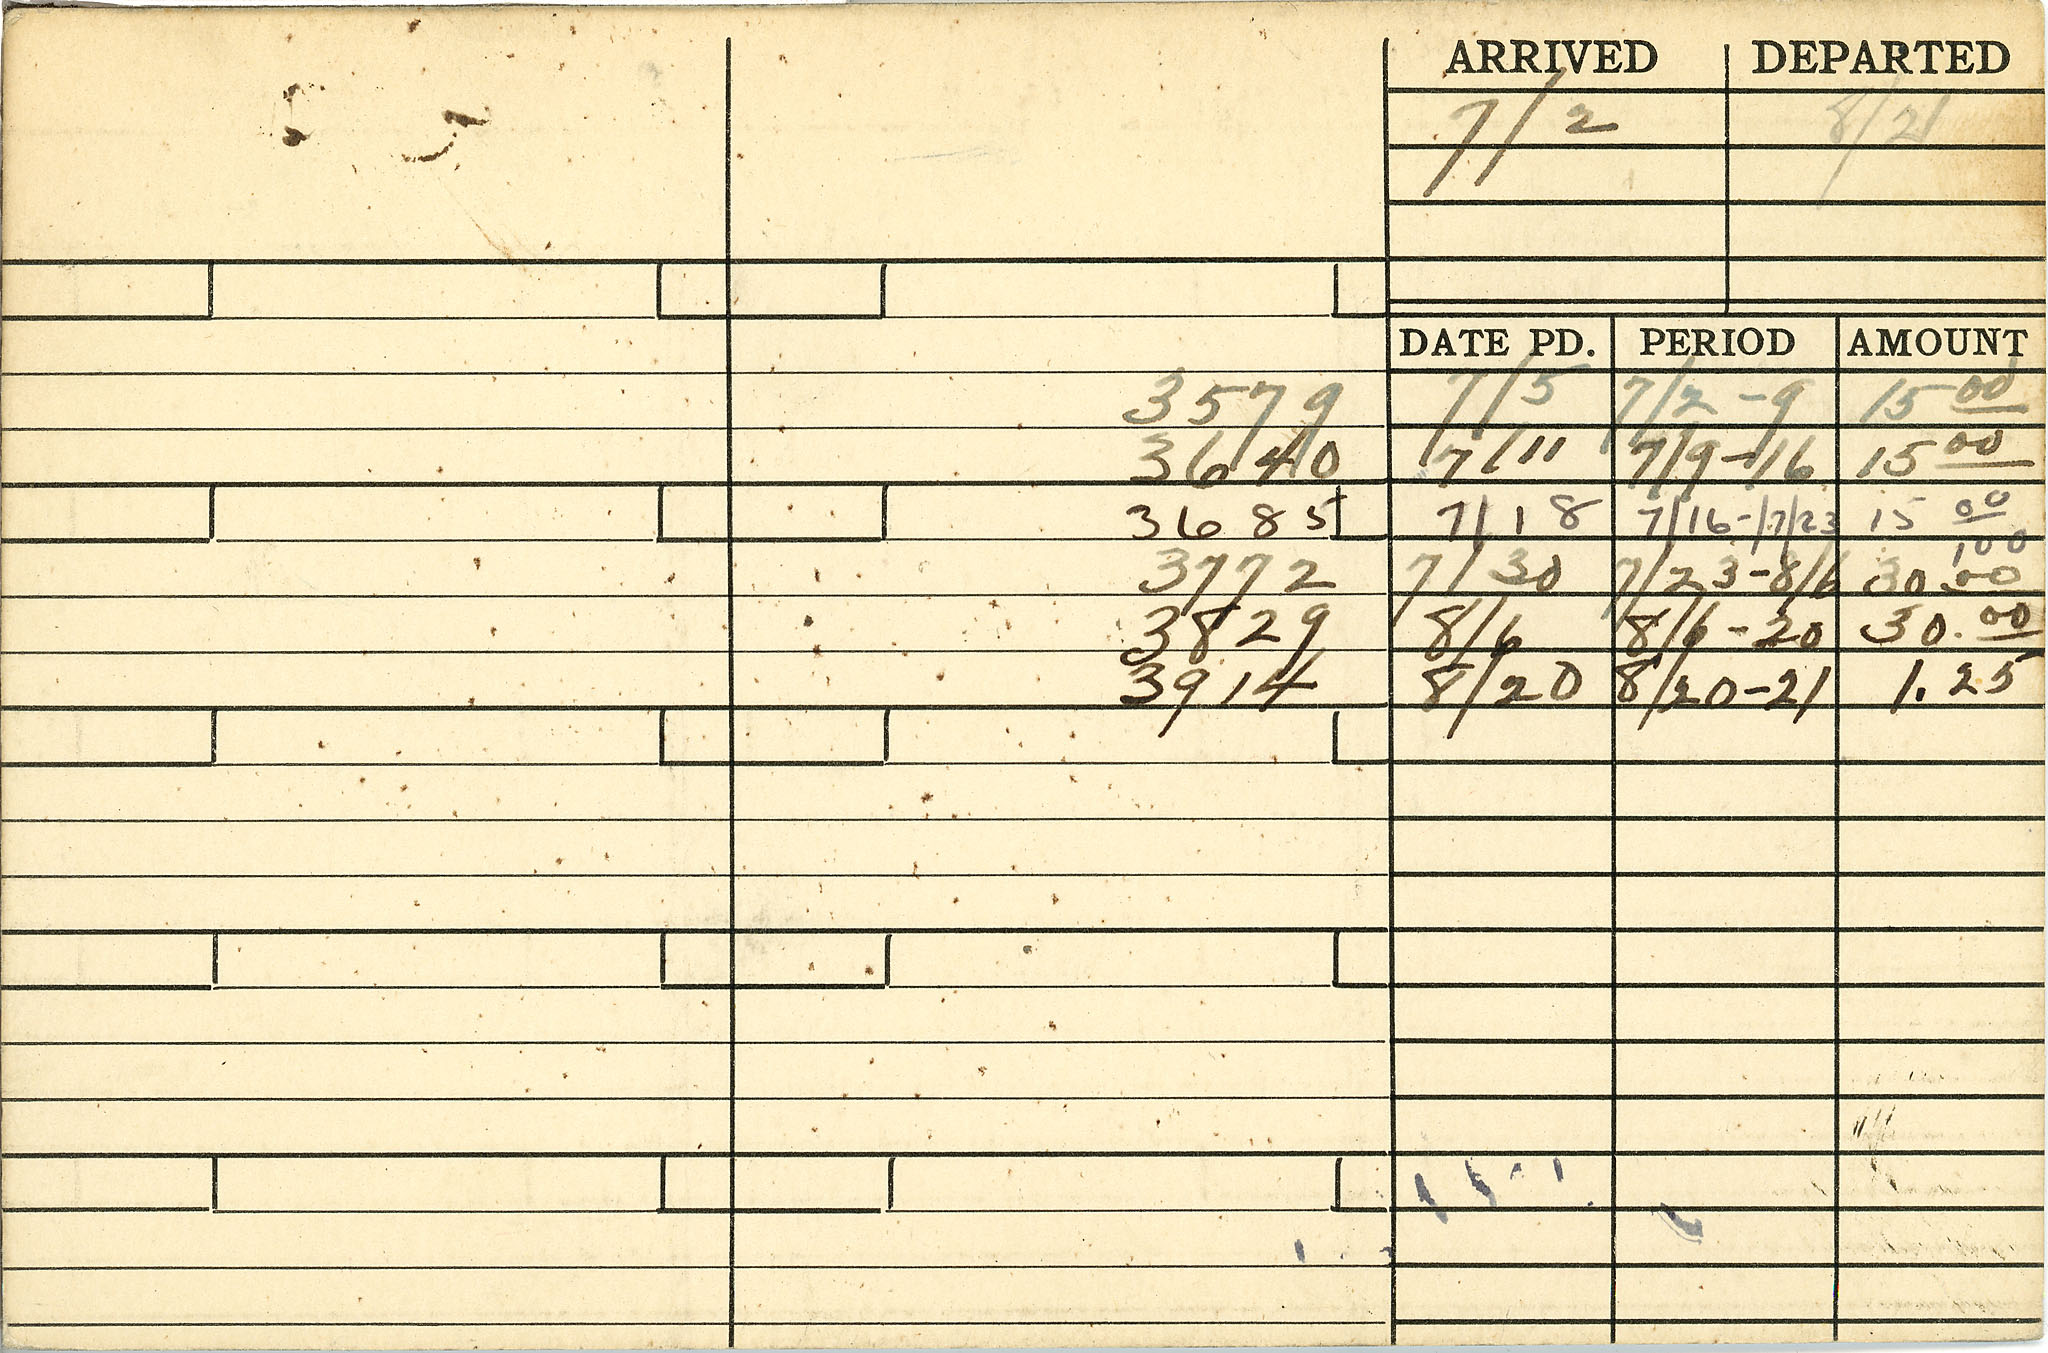 ARRIVED DEPARTED
7/2 8/21
DATE PD. PERIOD AMOUNT
3579 7/5 7/2-9 15 00
3640 7/11 7/9-16 15 00
3685 7/18 7/16-7/23 15 00
100
3772 7/30 7/23-8/6 30.00
3829 8/6 8/6-20 30.00
3914 8/20 8/20-21 1.25